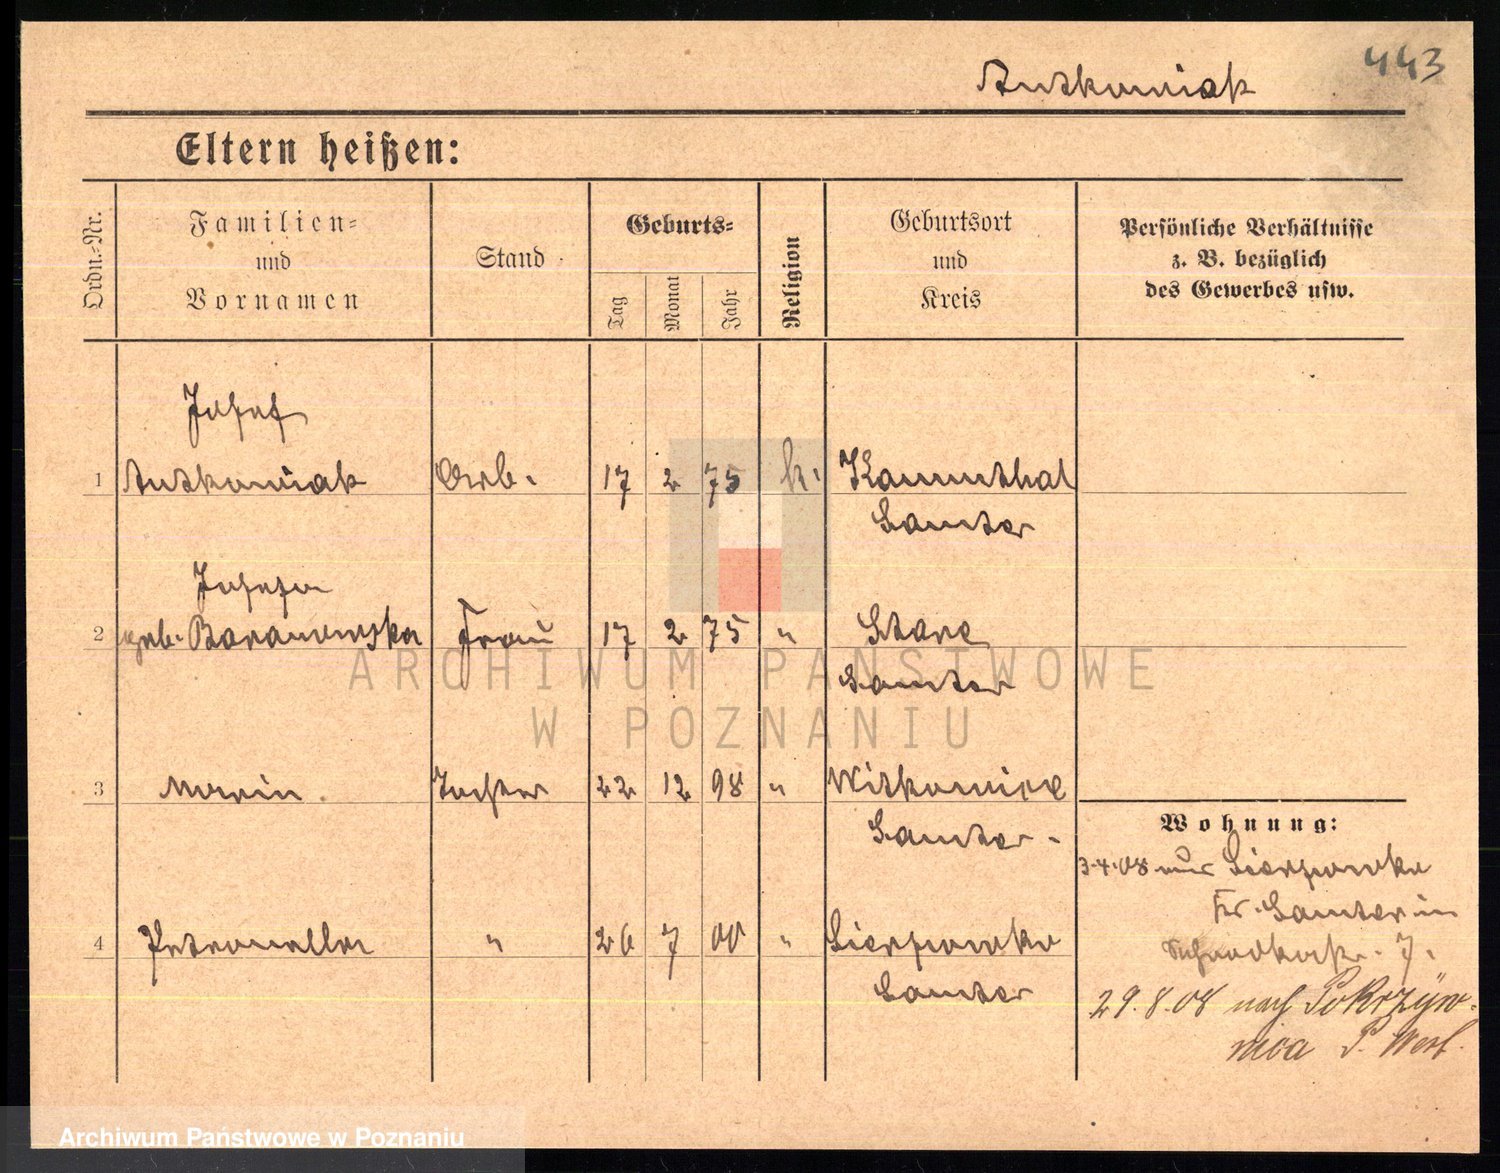 443
Antkowiak
Eltern heißen:
Ordn.-Nr.
Familien-
und
Vornamen
Stand
Geburts-
Tag
Monat
Jahr
Religion
Geburtsort
und
Kreis
Persönliche Verhältnisse
z. B. bezüglich
des Gewerbes usw.
Josef
1 Antkowiak Arb. 17 2 75 k. Kammthal
Samter
Josefa
2 geb. Baranowska Frau 17 2 75 " Stare
Samter
3 Maria Tochter 22 12 98 " Witkowice
Samter.
Wohnung:
3.4.08 aus Sierpowko
Kr. Samter in
7.
4 Petronella " 26 7 00 " Sierpowko
Samter
29.8.08 nach Pokrzyw-
nica P. West.
ARCHIWUM PAŃSTWOWE
W POZNANIU
Archiwum Państwowe w Poznaniu